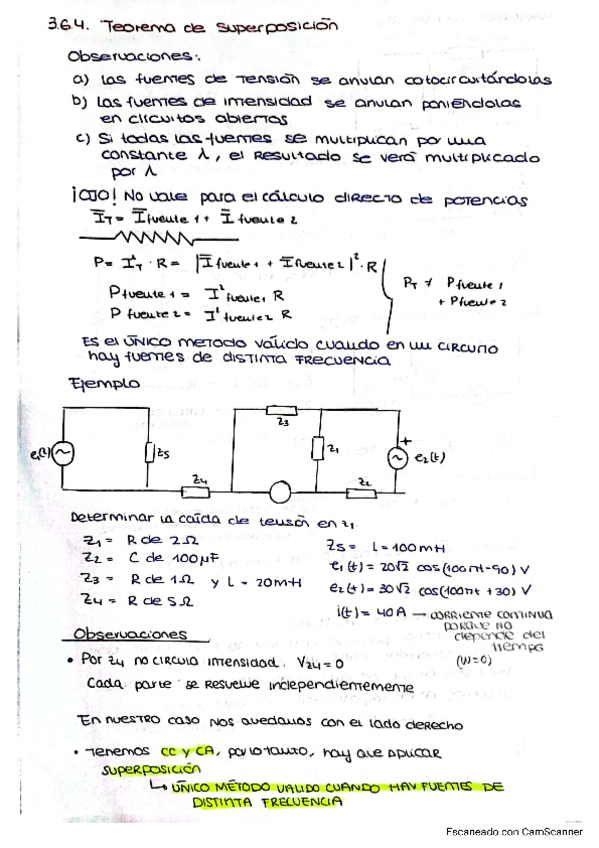 3.6.4. Teorema de superposición
Observaciones:
a) Las fuentes de tensión se anulan cotocircuitándolas
b) Las fuentes de intensidad se anulan poniéndolas
en circuitos abiertos
c) Si todas las fuentes se multiplican por una
constante λ, el resultado se verá multiplicado
por λ
¡OJO! No vale para el cálculo directo de potencias
I̅T = I̅fuente 1 + I̅fuente 2
P = I²T · R = |I̅fuente 1 + I̅fuente 2|² · R
Pfuente 1 = I²fuente1 R
Pfuente 2 = I²fuente2 R
PT ≠ Pfuente 1
+ Pfuente 2
Es el ÚNICO método válido cuando en un circuito
hay fuentes de DISTINTA FRECUENCIA
Ejemplo
e1(t) Z5 Z4 Z3 Z1 Z2 + e2(t)
Determinar la caída de tensón en Z1
Z1 = R de 2Ω
Z2 = C de 100μF
Z3 = R de 1Ω y L = 20mH
Z4 = R de 5Ω
Z5 = L = 100mH
e1(t) = 20√2 cos(100πt-90) V
e2(t) = 30√2 cos(100πt +30) V
i(t) = 40A → CORRIENTE CONTINUA
PORQUE NO
depende del
tiempo
(W=0)
Observaciones
• Por Z4 no circula intensidad. VZ4 = 0
Cada parte se resuelve independientemente
En nuestro caso nos quedamos con el lado derecho
• Tenemos CC y CA, por lo tanto, hay que aplicar
superposición
↳ ÚNICO MÉTODO VALIDO CUANDO HAY FUENTES DE
DISTINTA FRECUENCIA
Escaneado con CamScanner